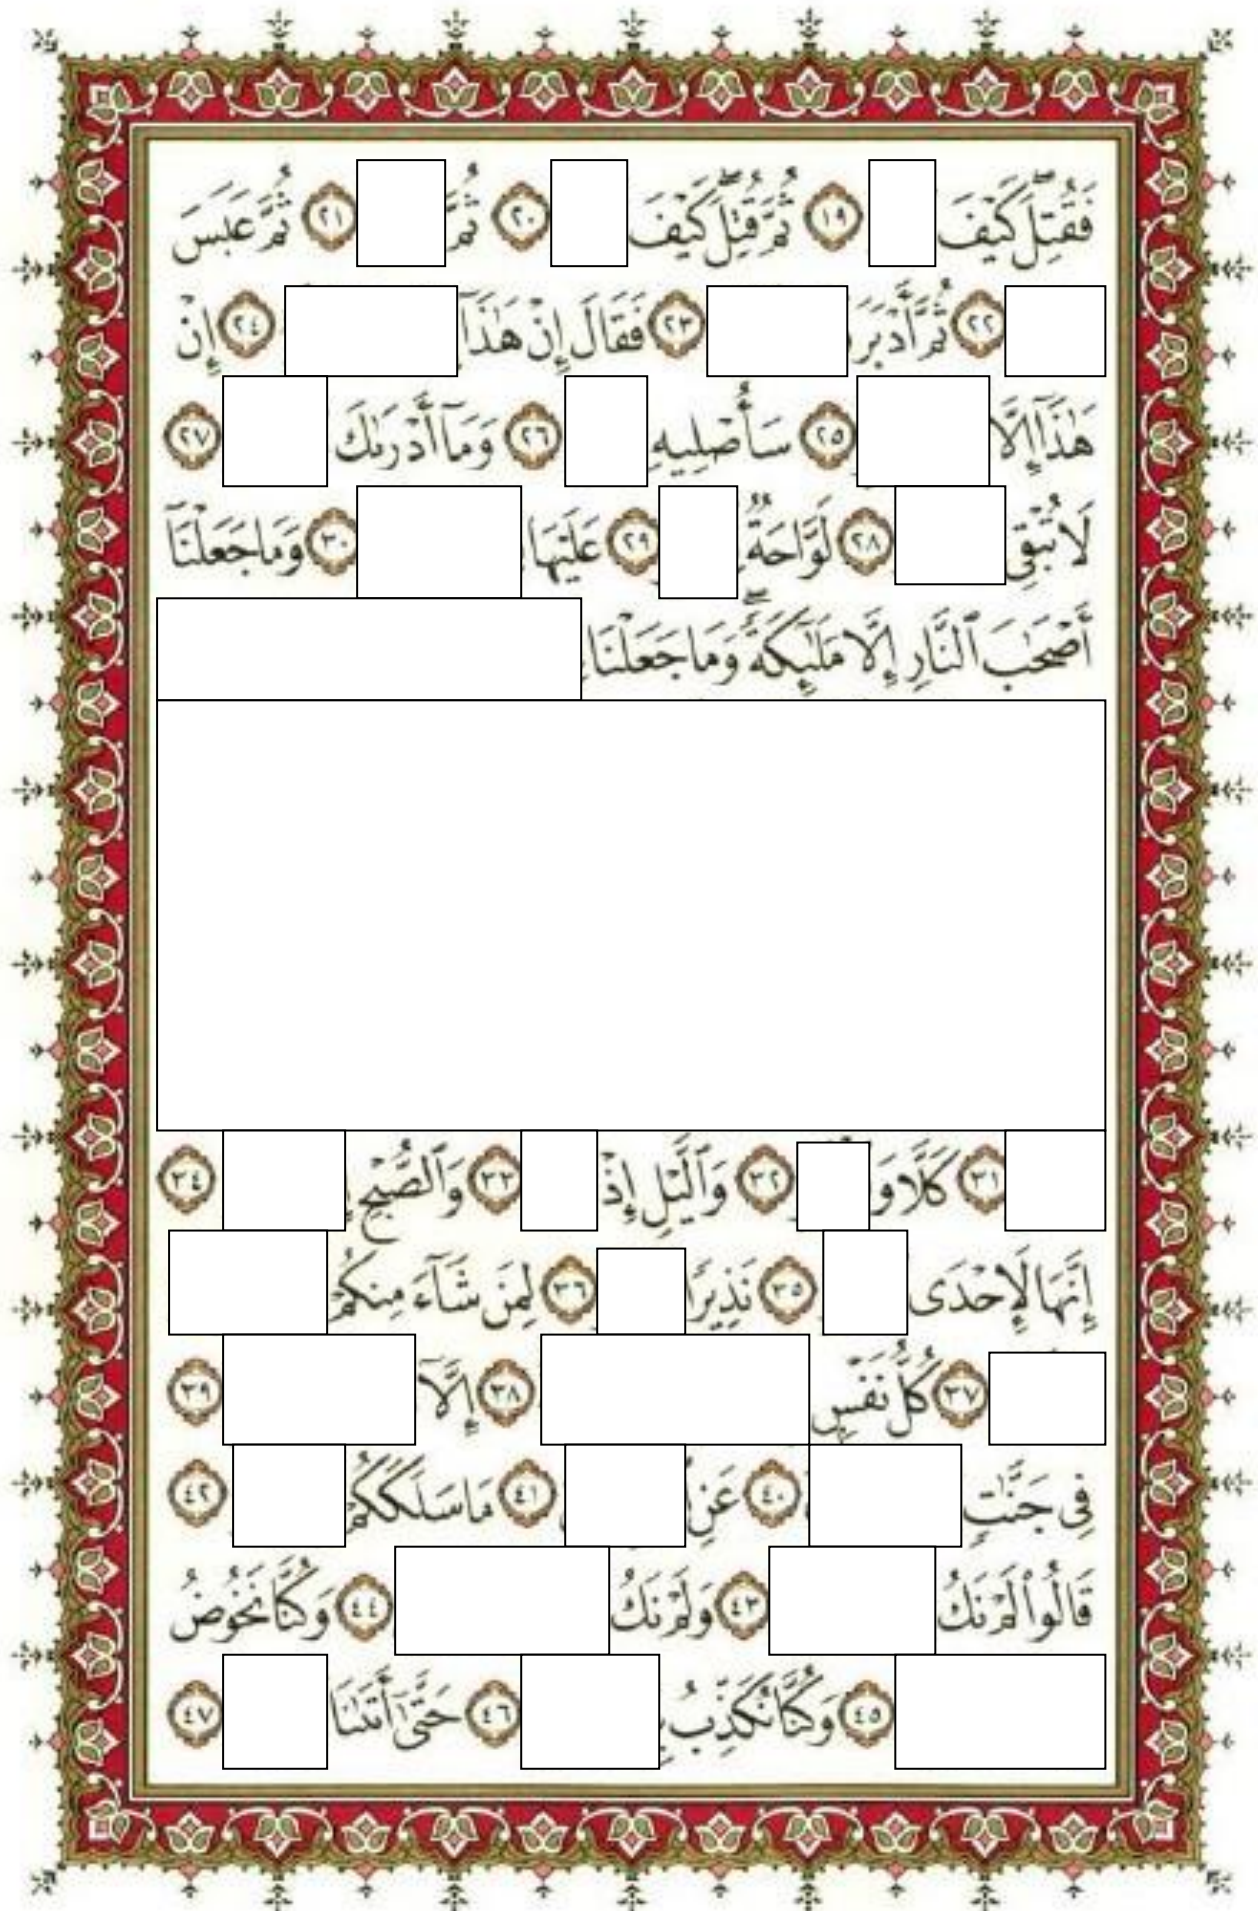 فَقُتِلَ كَيْفَ ١٩ ثُمَّ قُتِلَ كَيْفَ ٢٠ ثُمَّ ٢١ ثُمَّ عَبَسَ
٢٢ ثُمَّ أَدْبَرَ ٢٣ فَقَالَ إِنْ هَٰذَآ ٢٤ إِنْ
هَٰذَآ إِلَّا ٢٥ سَأُصْلِيهِ ٢٦ وَمَآ أَدْرَىٰكَ ٢٧
لَا تُبْقِى ٢٨ لَوَّاحَةٌ ٢٩ عَلَيْهَا ٣٠ وَمَا جَعَلْنَآ
أَصْحَٰبَ ٱلنَّارِ إِلَّا مَلَٰٓئِكَةً ۙ وَمَا جَعَلْنَا
٣١ كَلَّا وَ ٣٢ وَٱلَّيْلِ إِذْ ٣٣ وَٱلصُّبْحِ ٣٤
إِنَّهَا لَإِحْدَى ٣٥ نَذِيرًا ٣٦ لِمَن شَآءَ مِنكُمْ
٣٧ كُلُّ نَفْسٍۭ ٣٨ إِلَّآ ٣٩
فِى جَنَّٰتٍ ٤٠ عَنِ ٤١ مَا سَلَكَكُمْ ٤٢
قَالُوا۟ لَمْ نَكُ ٤٣ وَلَمْ نَكُ ٤٤ وَكُنَّا نَخُوضُ
٤٥ وَكُنَّا نُكَذِّبُ بِ ٤٦ حَتَّىٰٓ أَتَىٰنَا ٤٧